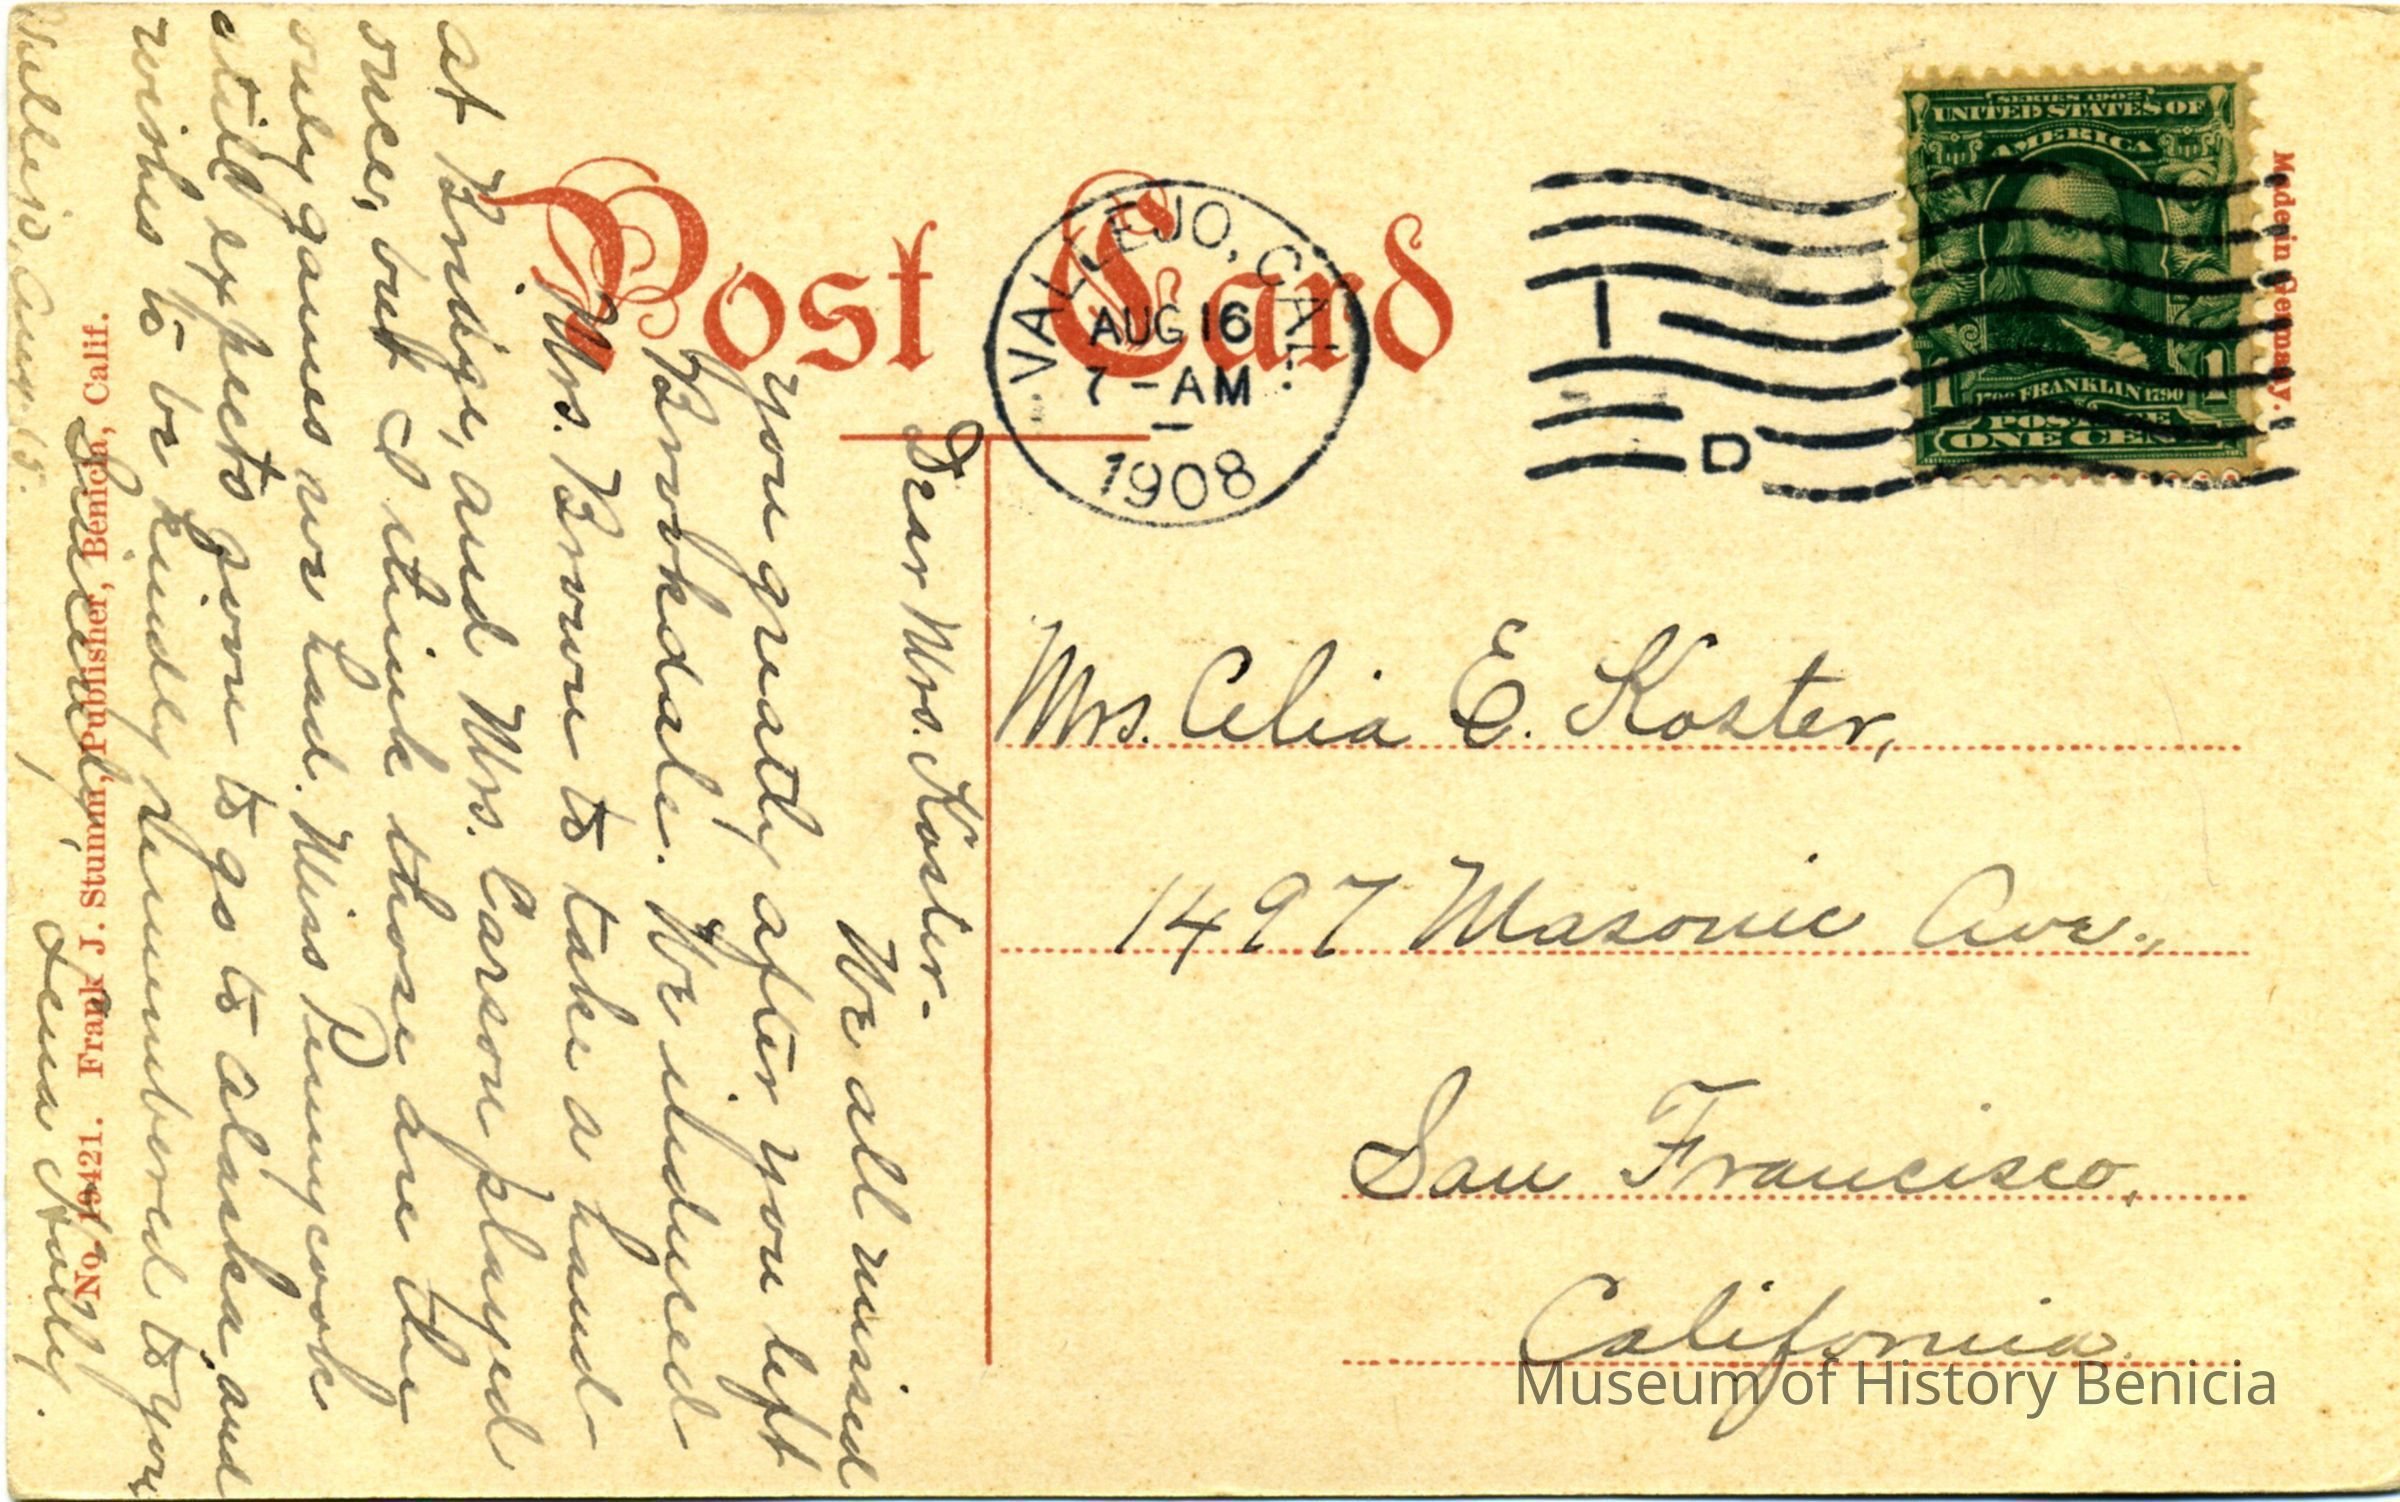 Post Card
VALLEJO, CAL.
AUG 16
7 - AM
1908
1
D
SERIES 1902
UNITED STATES OF
AMERICA
1706 FRANKLIN 1790
1 1
POSTAGE
ONE CENT
Made in Germany.
Mrs. Celia E. Koster,
1497 Masonic Ave.,
San Francisco,
California.
Dear Mrs. Koster.-
We all missed
you greatly after you left
Brookdale. We induced
Mrs. Brown to take a hand
at Bridge, and Mrs. Carson played
once, but I think those are the
only games we had. Miss Pennycook
still expects Jovre to go to Alaska, and
wishes to be kindly remembered to you
Sincerely,
Lena Nolly.
Vallejo, Aug. 15.
No. 19421. Frank J. Stumm, Publisher, Benicia, Calif.
Museum of History Benicia